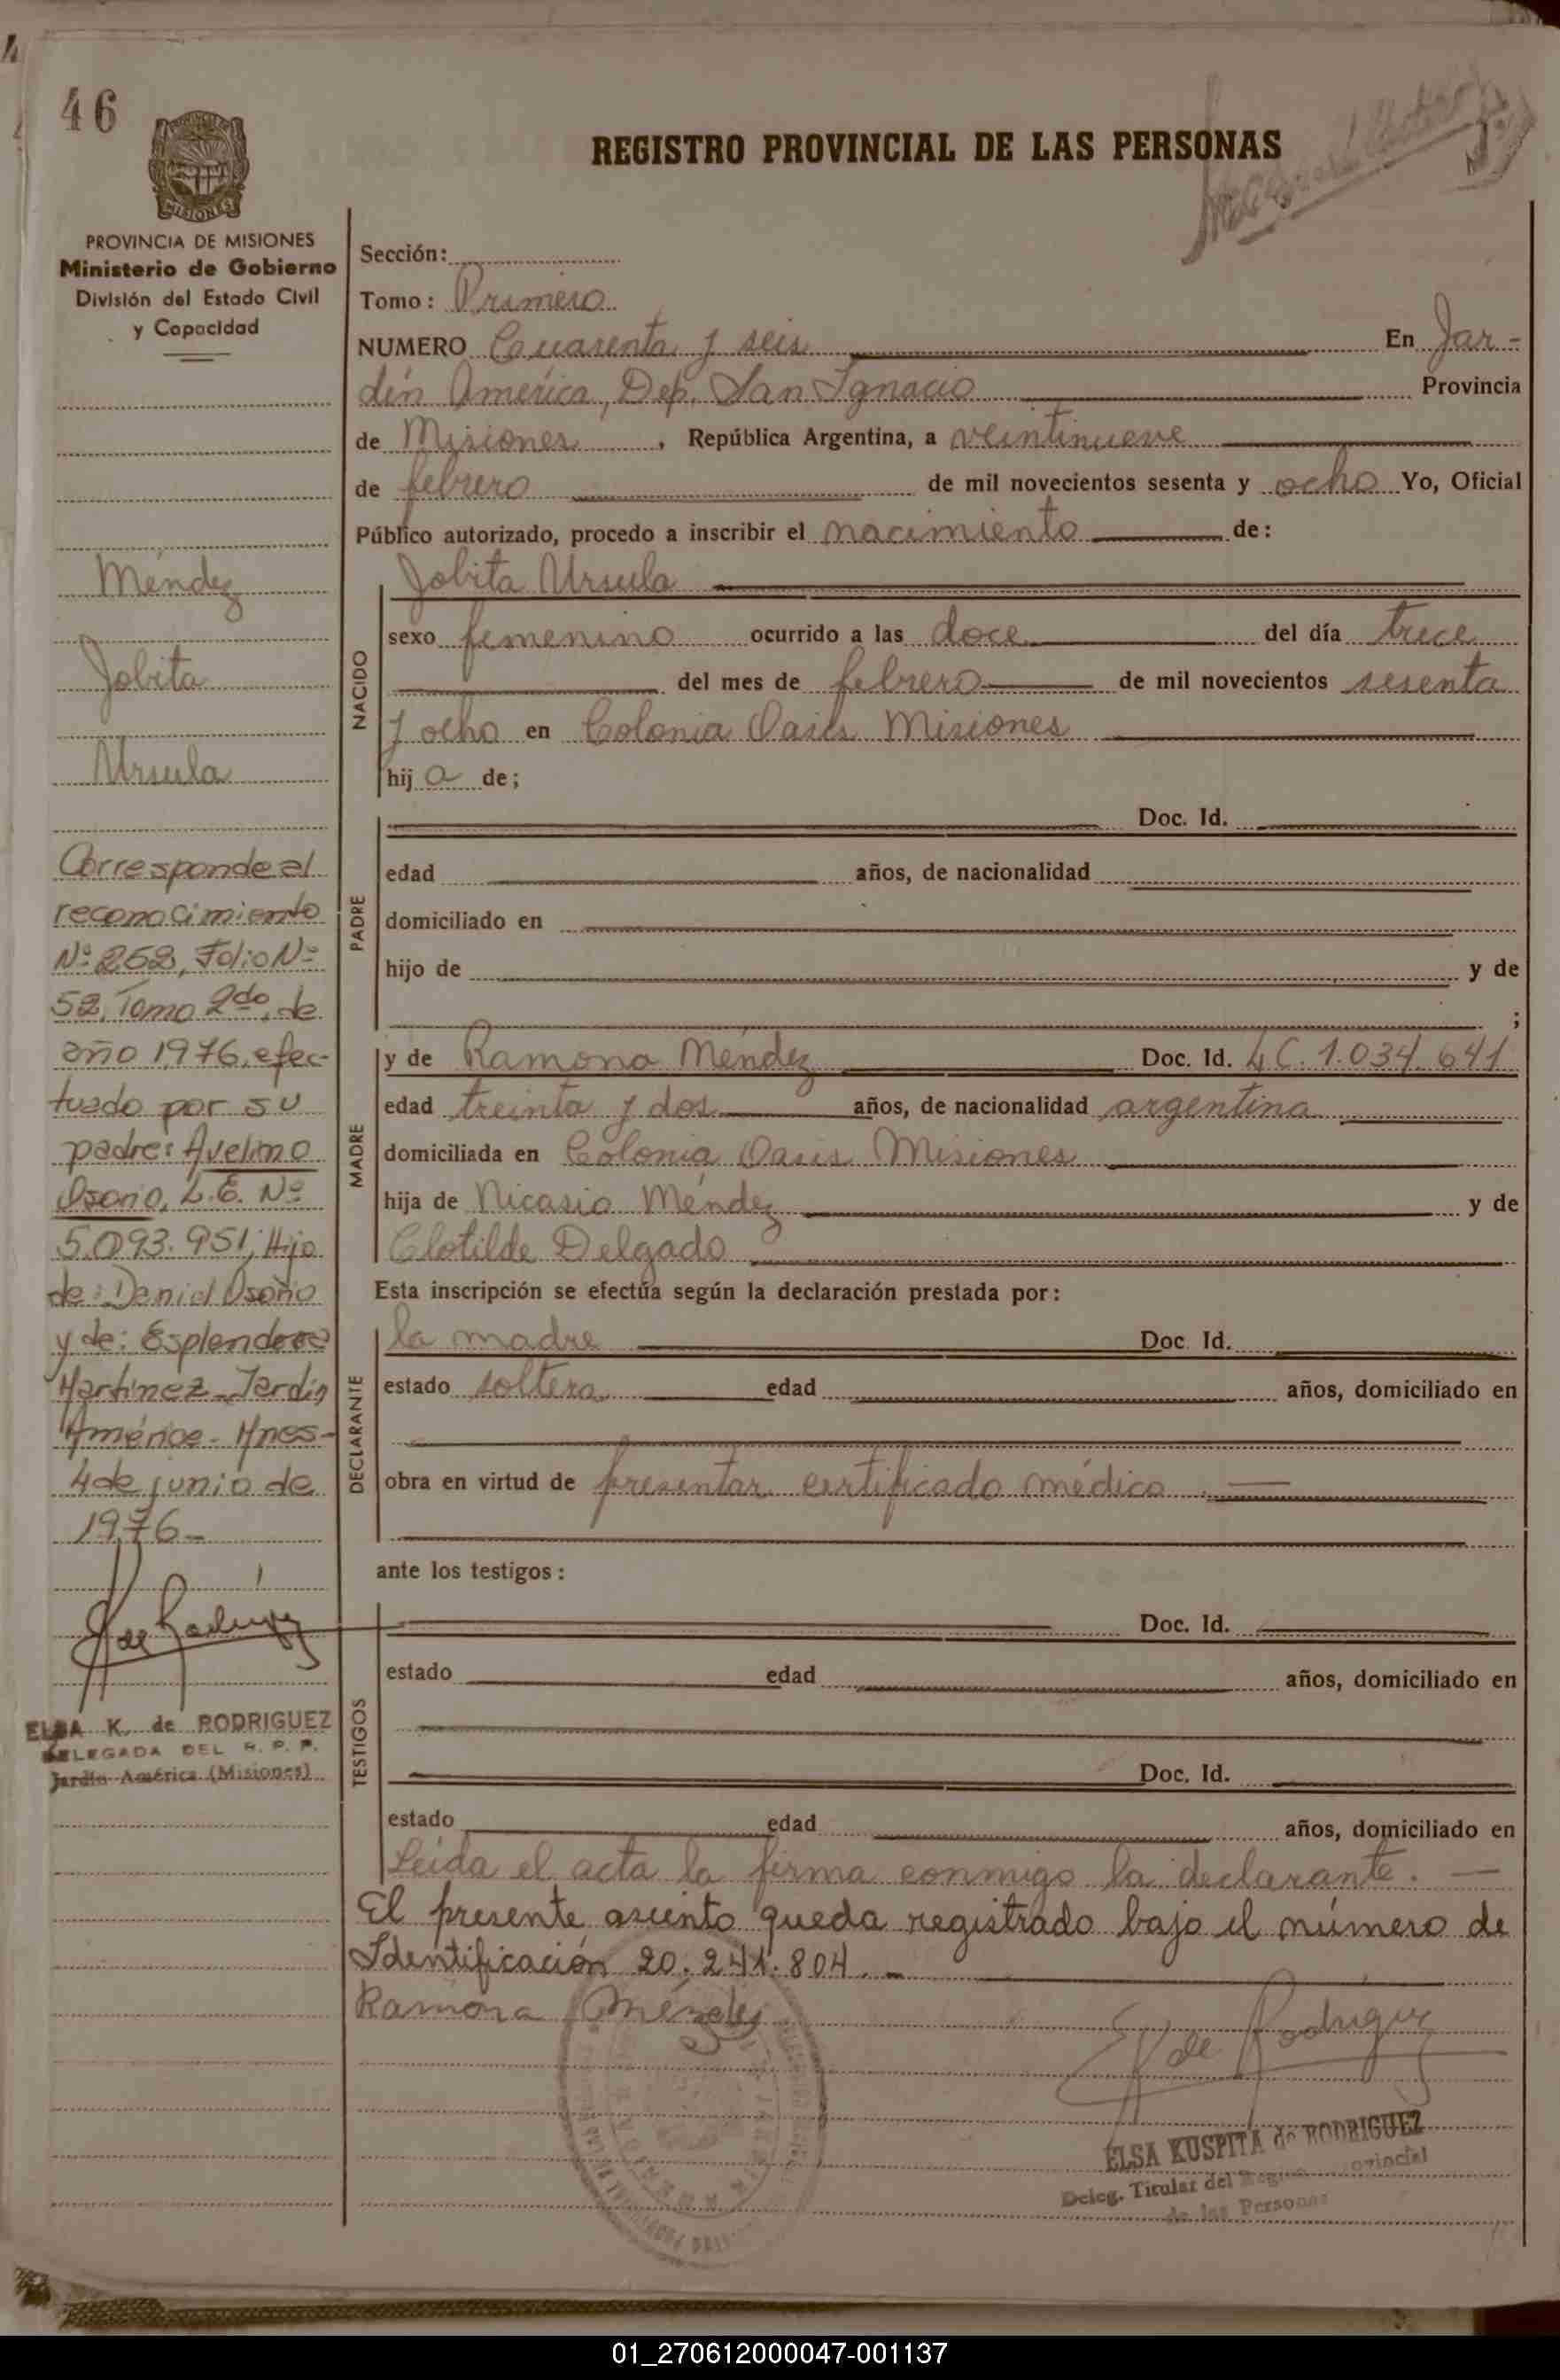 46
REGISTRO PROVINCIAL DE LAS PERSONAS
MISIONES
PROVINCIA DE MISIONES
Ministerio de Gobierno
División del Estado Civil
y Capacidad
Méndez
Jobita
Ursula
Corresponde al
reconocimiento
Nº 252, Folio Nº
52, Tomo 2do, de
año 1976, efec-
tuado por su
padre: Avelino
Osorio, L.E. Nº
5.093.951; Hijo
de: Daniel Osorio
y de: Esplendora
Martínez - Jardín
América - Mnes-
4 de junio de
1976 -
ELSA K. de RODRIGUEZ
DELEGADA DEL R. P. P.
Jardín América (Misiones)
Sección:
Tomo: Primero
NUMERO Cuarenta y seis En Jar-
dín América, Dep. San Ignacio Provincia
de Misiones, República Argentina, a veintinueve
de febrero de mil novecientos sesenta y ocho Yo, Oficial
Público autorizado, procedo a inscribir el nacimiento de:
NACIDO
Jobita Ursula
sexo femenino ocurrido a las doce del día trece
del mes de febrero de mil novecientos sesenta
y ocho en Colonia Oasis Misiones
hija de;
PADRE
Doc. Id.
edad años, de nacionalidad
domiciliado en
hijo de y de
;
MADRE
y de Ramona Méndez Doc. Id. LC. 1.034.641
edad treinta y dos años, de nacionalidad argentina
domiciliada en Colonia Oasis Misiones
hija de Nicasio Méndez y de
Clotilde Delgado
Esta inscripción se efectúa según la declaración prestada por:
DECLARANTE
la madre Doc. Id.
estado soltera edad años, domiciliado en
obra en virtud de presentar certificado médico.
ante los testigos:
TESTIGOS
Doc. Id.
estado edad años, domiciliado en
Doc. Id.
estado edad años, domiciliado en
Leída el acta la firma conmigo la declarante. —
El presente asiento queda registrado bajo el número de
Identificación 20.241.804. -
Ramona Méndez
E K de Rodriguez
ELSA KUSPITA de RODRIGUEZ
Deleg. Titular del
de las Personas
01_270612000047-001137